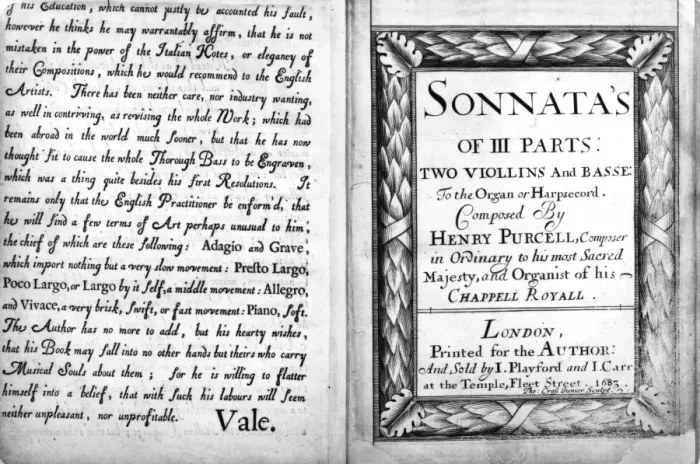 of his Education, which cannot justly be accounted his fault,
however he thinks he may warrantably affirm, that he is not
mistaken in the power of the Italian Notes, or elegancy of
their Compositions, which he would recommend to the English
Artists. There has been neither care, nor industry wanting,
as well in contriving, as revising the whole Work; which had
been abroad in the world much sooner, but that he has now
thought fit to cause the whole Thorough Bass to be Engraven,
which was a thing quite besides his first Resolutions. It
remains only that the English Practitioner be enform'd, that
he will find a few terms of Art perhaps unusual to him,
the chief of which are these following: Adagio and Grave,
which import nothing but a very slow movement: Presto Largo,
Poco Largo, or Largo by it Self, a middle movement: Allegro,
and Vivace, a very brisk, Swift, or fast movement: Piano, Soft.
The Author has no more to add, but his hearty wishes,
that his Book may fall into no other hands but theirs who carry
Musical Souls about them; for he is willing to flatter
himself into a belief, that with Such his labours will Seem
neither unpleasant, nor unprofitable. Vale.
SONNATA'S
OF III PARTS:
TWO VIOLLINS And BASSE:
To the Organ or Harpsecord.
Composed By
HENRY PURCELL, Composer
in Ordinary to his most Sacred
Majesty, and Organist of his
CHAPPELL ROYALL.
LONDON,
Printed for the AUTHOR:
And Sold by I. Playford and I. Carr
at the Temple, Fleet Street. 1683.
Tho: Cross Junior Sculpt.